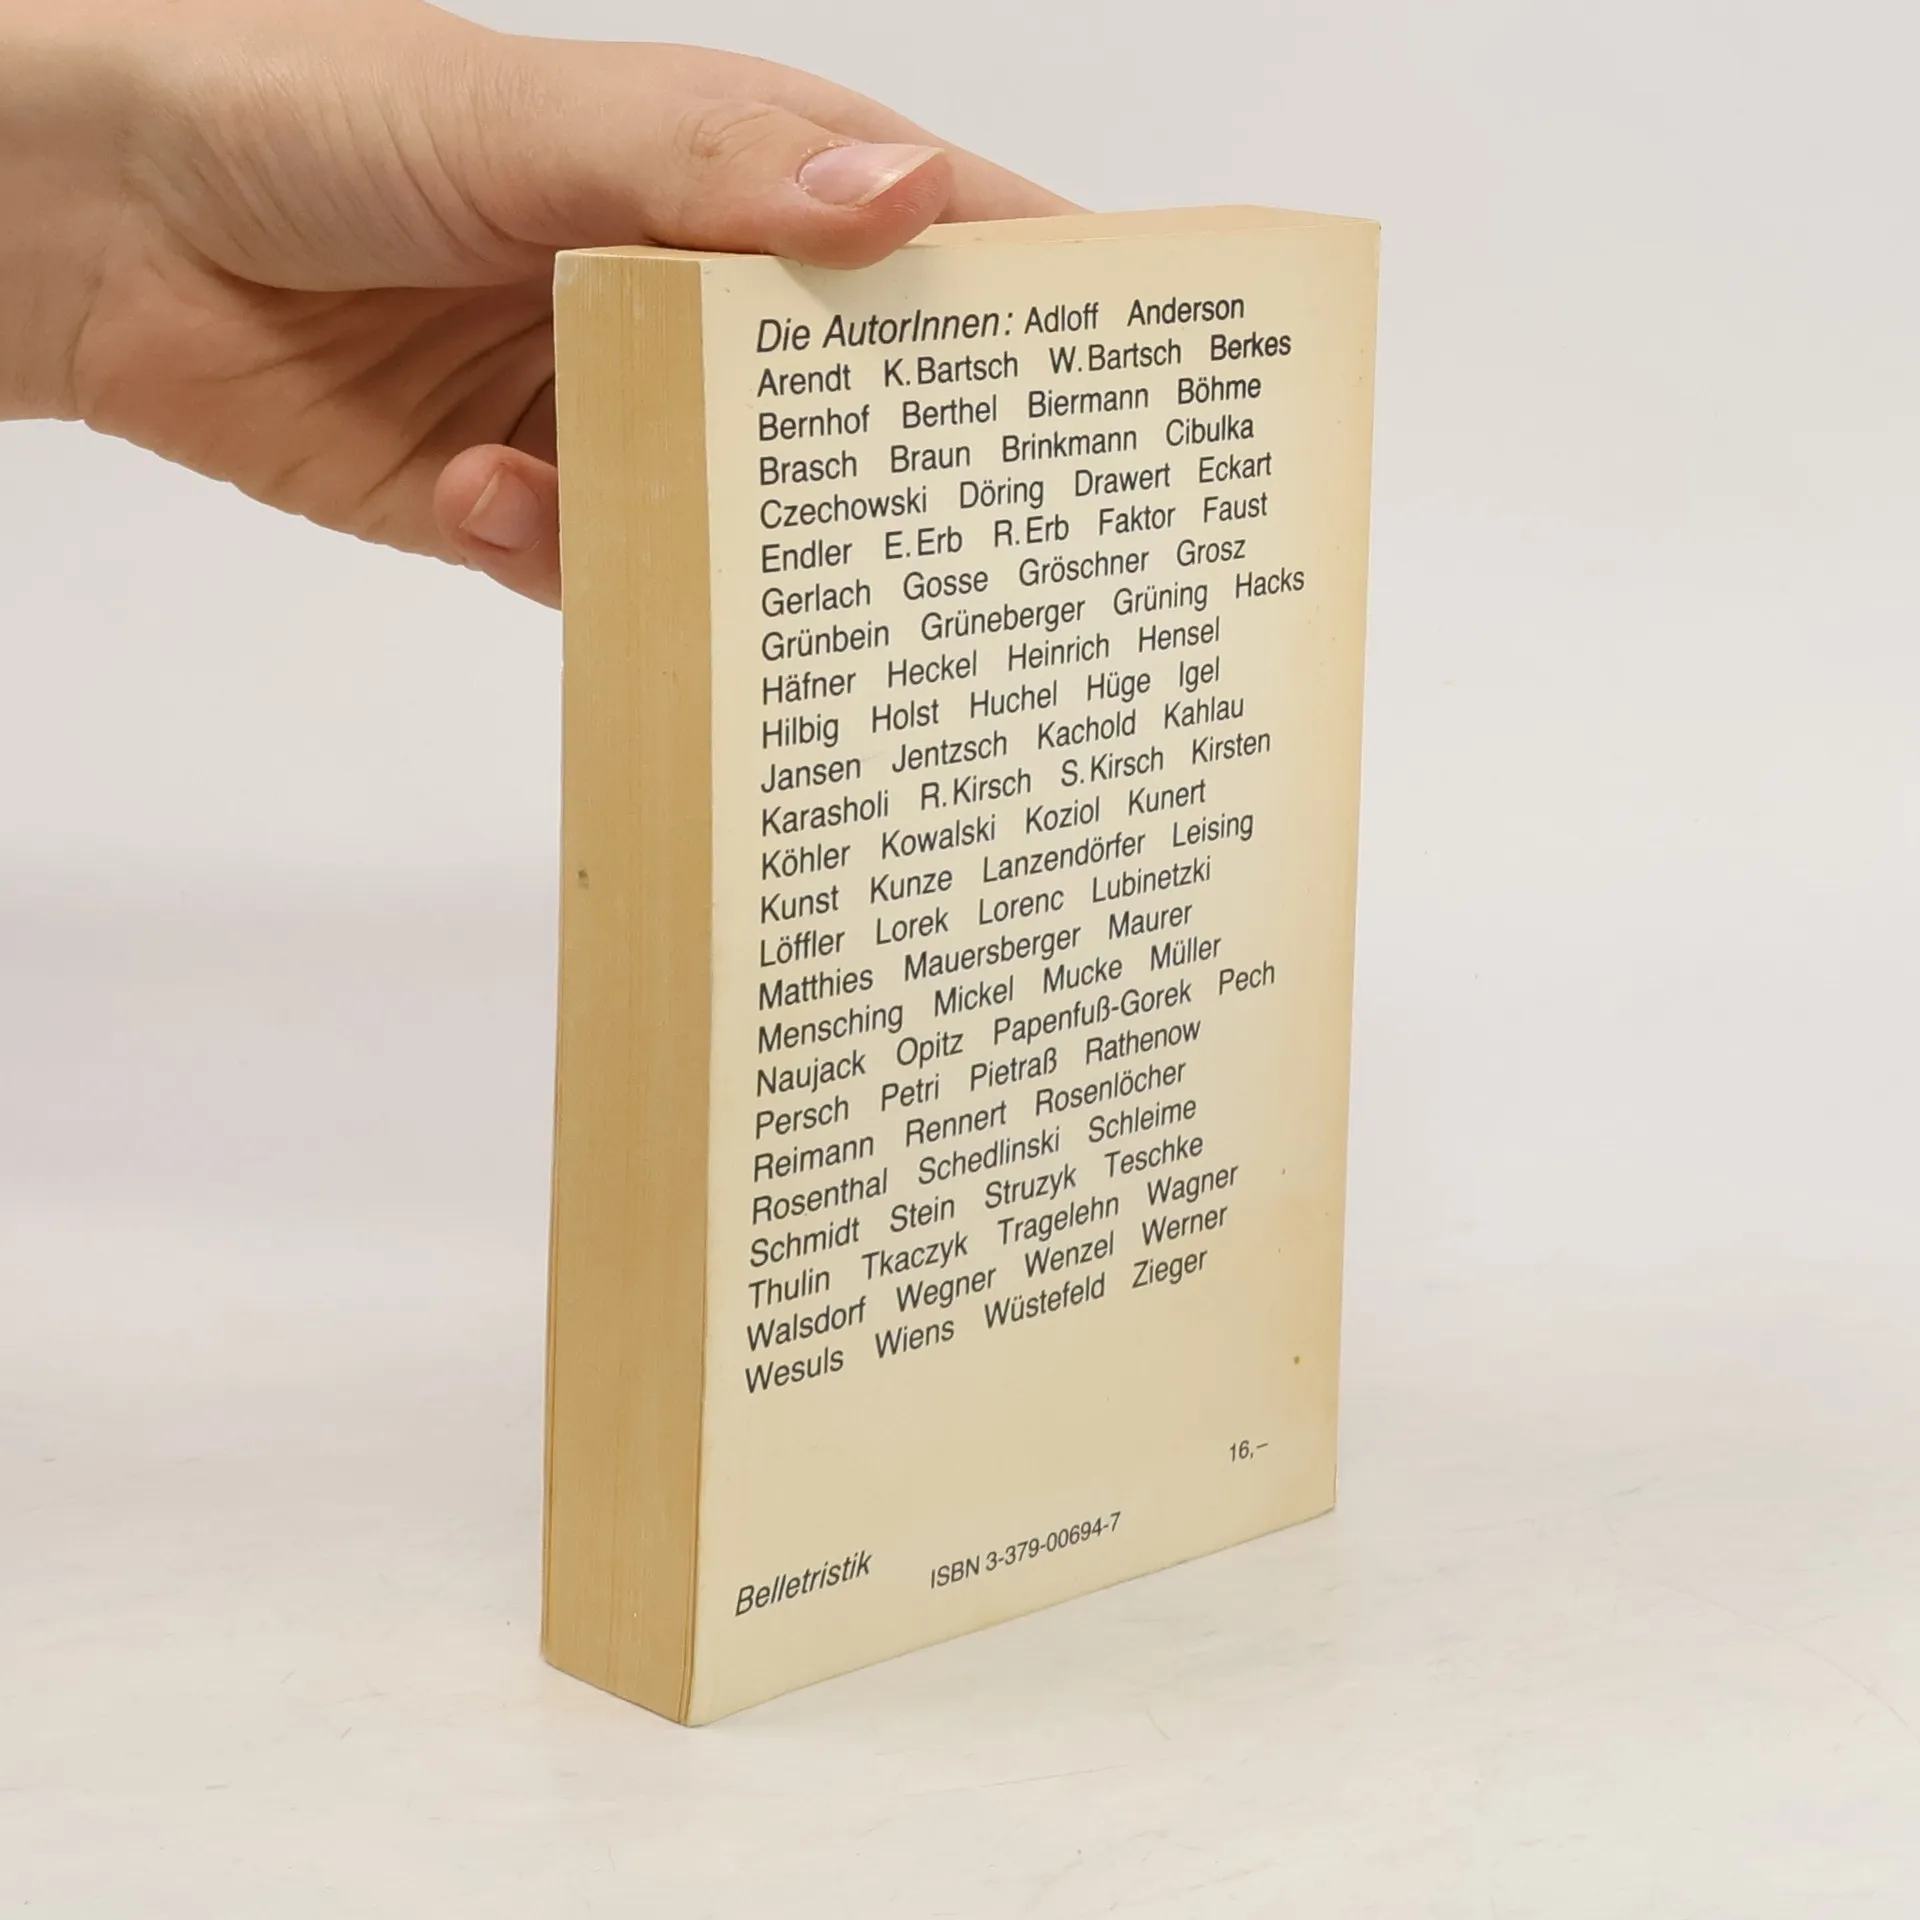 Die AutorInnen: Adloff Anderson
Arendt K. Bartsch W. Bartsch Berkes
Bernhof Berthel Biermann Böhme
Brasch Braun Brinkmann Cibulka
Czechowski Döring Drawert Eckart
Endler E. Erb R. Erb Faktor Faust
Gerlach Gosse Gröschner Grosz
Grünbein Grüneberger Grüning Hacks
Häfner Heckel Heinrich Hensel
Hilbig Holst Huchel Hüge Igel
Jansen Jentzsch Kachold Kahlau
Karasholi R. Kirsch S. Kirsch Kirsten
Köhler Kowalski Koziol Kunert
Kunst Kunze Lanzendörfer Leising
Löffler Lorek Lorenc Lubinetzki
Matthies Mauersberger Maurer
Mensching Mickel Mucke Müller
Naujack Opitz Papenfuß-Gorek Pech
Persch Petri Pietraß Rathenow
Reimann Rennert Rosenlöcher
Rosenthal Schedlinski Schleime
Schmidt Stein Struzyk Teschke
Thulin Tkaczyk Tragelehn Wagner
Walsdorf Wegner Wenzel Werner
Wesuls Wiens Wüstefeld Zieger
16,–
Belletristik ISBN 3-379-00694-7